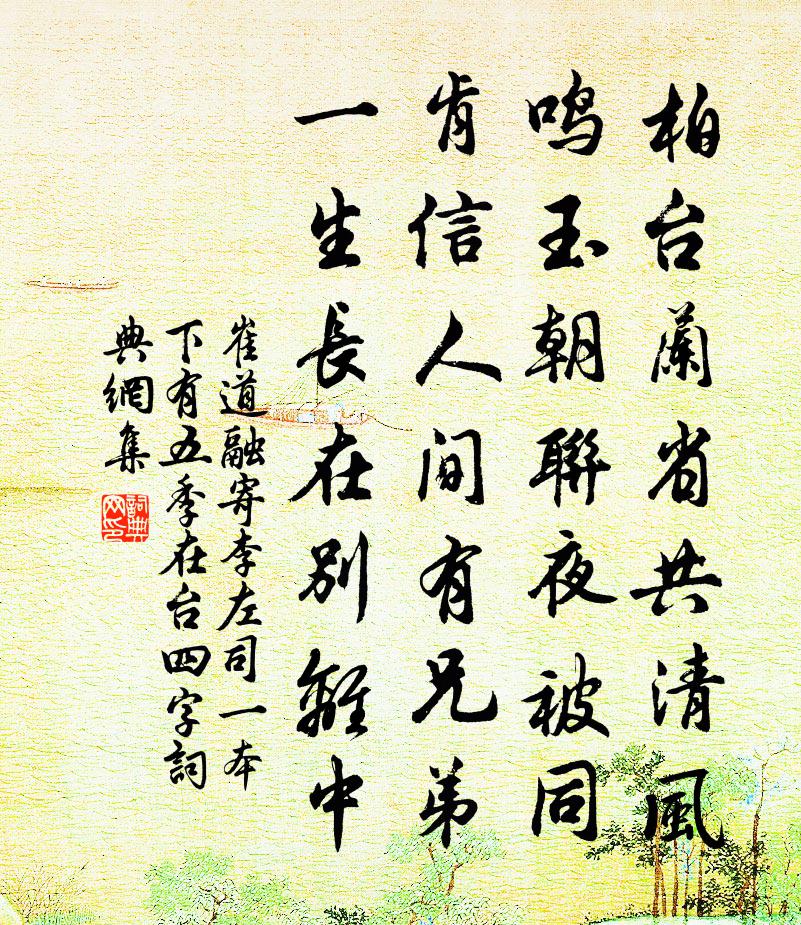 柏台蘭省共清風
鸣玉朝聯夜被同
肯信人间有兄弟
一生長在别離中
崔道融寄李左司一本
下有五季在台四字詞
典網集
詞典
网印